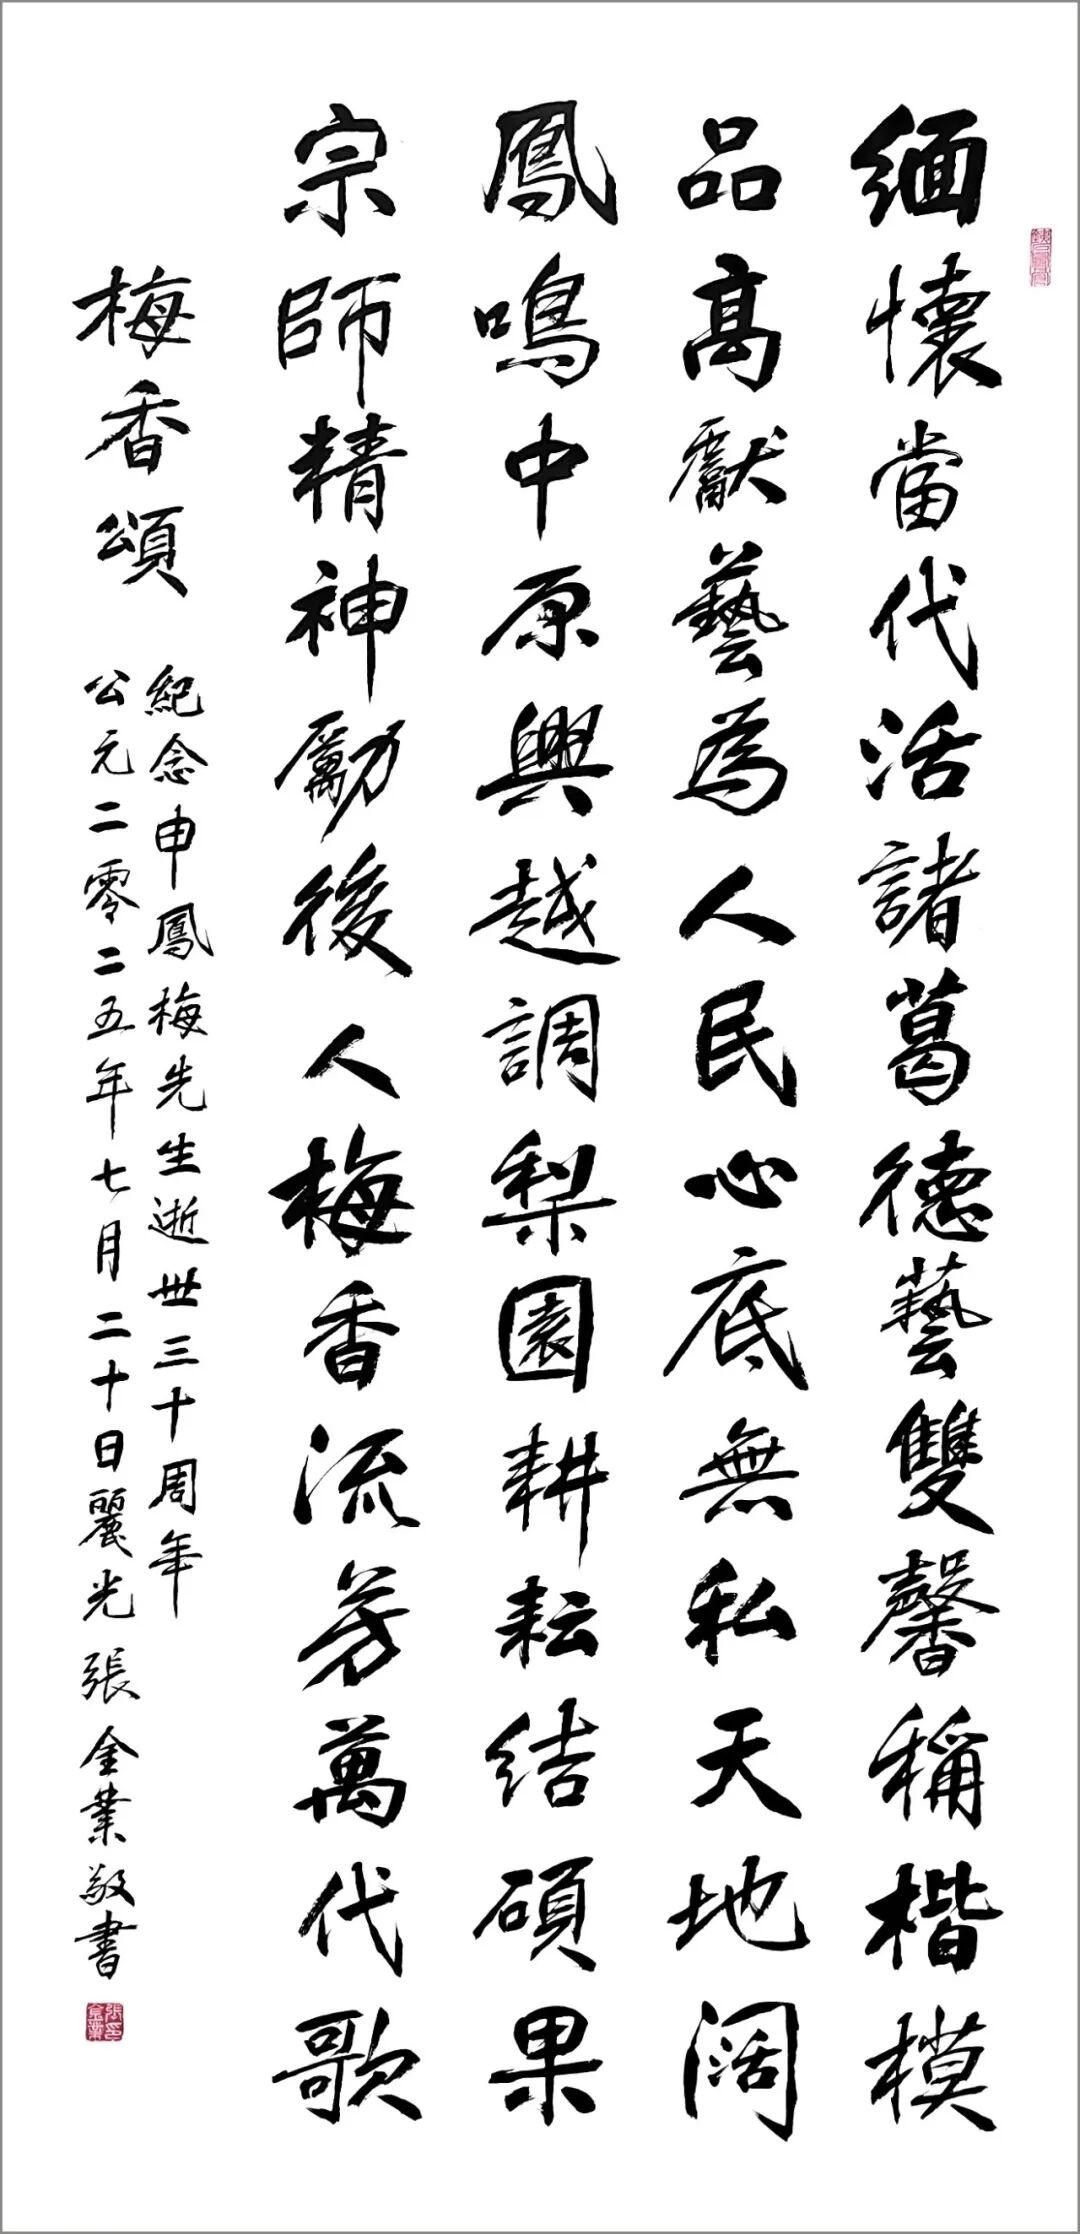 緬懷當代活諸葛德藝雙馨稱楷模
品高獻藝為人民心底無私天地闊
鳳鳴中原興越調梨園耕耘結碩果
宗師精神勵後人梅香流芳萬代歌
梅香頌
紀念申鳳梅先生逝世三十周年
公元二零二五年七月二十日麗光張金業敬書
張金業印